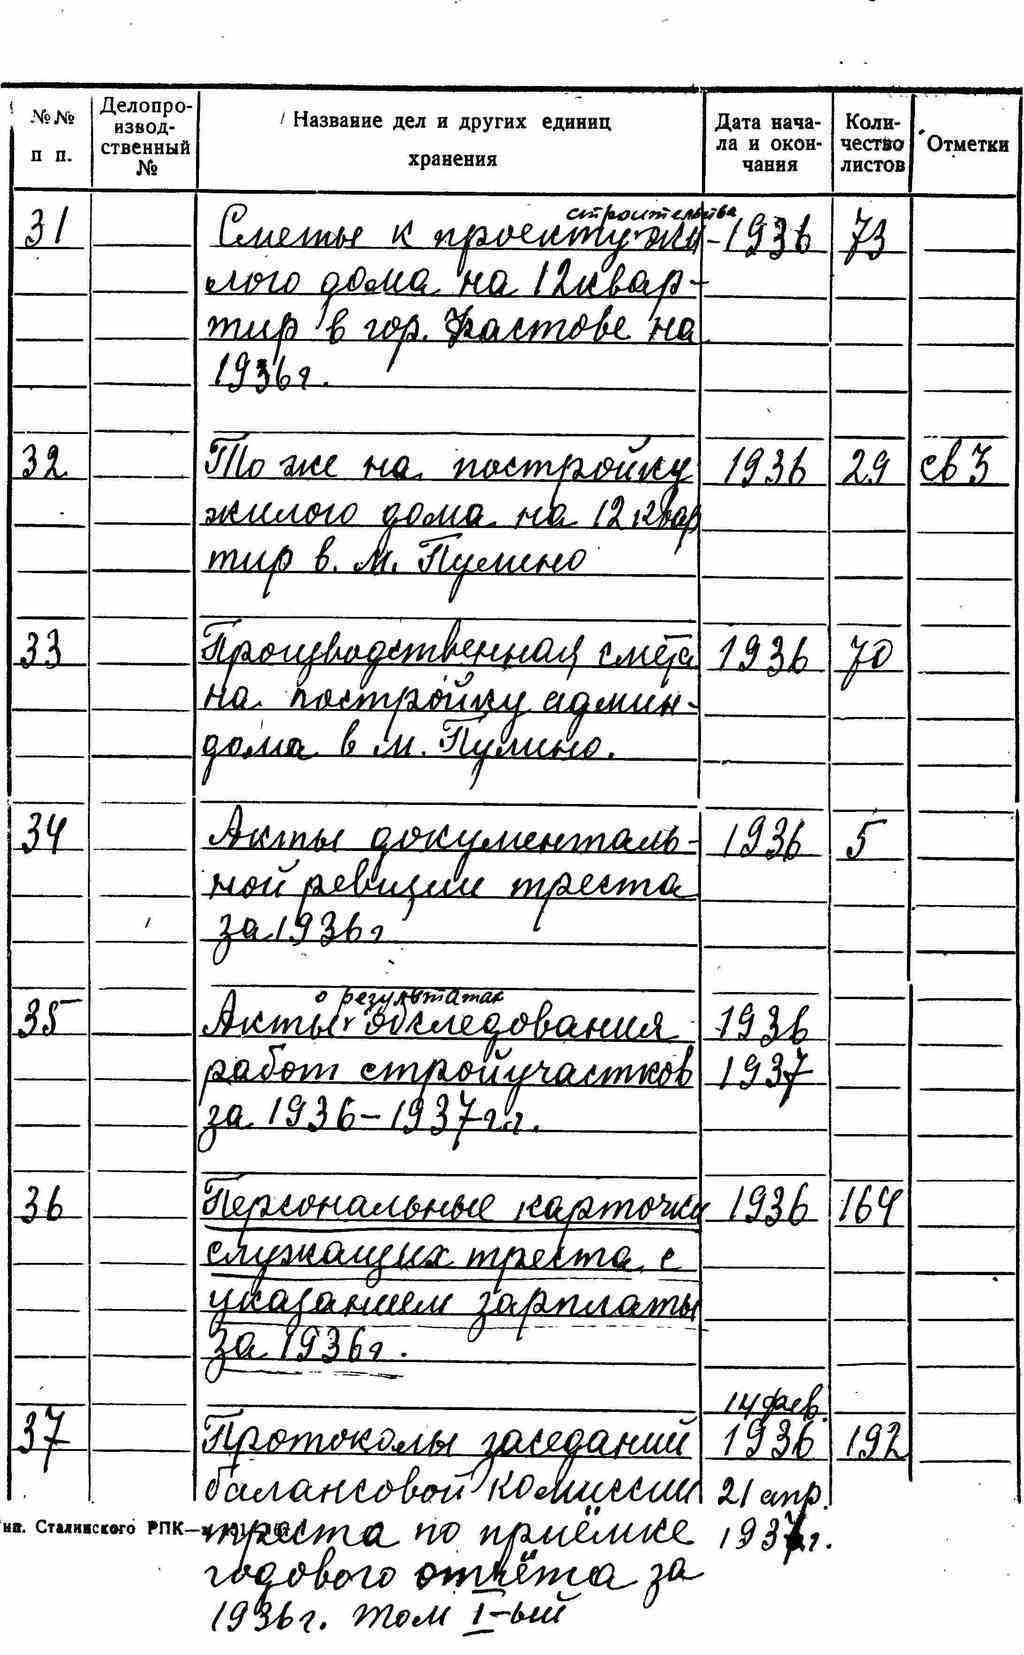 №№ п п.
Делопро-
извод-
ственный
№
Название дел и других единиц
хранения
Дата нача-
ла и окон-
чания
Коли-
чество
листов
Отметки
строительства
31 Сметы к проекту жи- 1936 73
лого дома на 12 квар-
тир в гор. Фастове на
1936 г.
32 То же на постройку 1936 29 св 3
жилого дома на 12 квар
тир в. м. Пулино
33 Производственная смета 1936 70
на постройку админ-
дома в м. Пулино.
34 Акты документаль- 1936 5
ной ревизии треста
за 1936 г
о результатах
35 Акты обследования 1936
работ стройучастков 1937
за 1936-1937 г.г.
36 Персональные карточки 1936 164
служащих треста с
указанием зарплаты
за 1936 г.
14 фев.
37 Протоколы заседаний 1936 192
балансовой комиссии 21 апр.
треста по приёмке 1937 г.
годового отчёта за
1936 г. том I-ый
тип. Сталинского РПК—